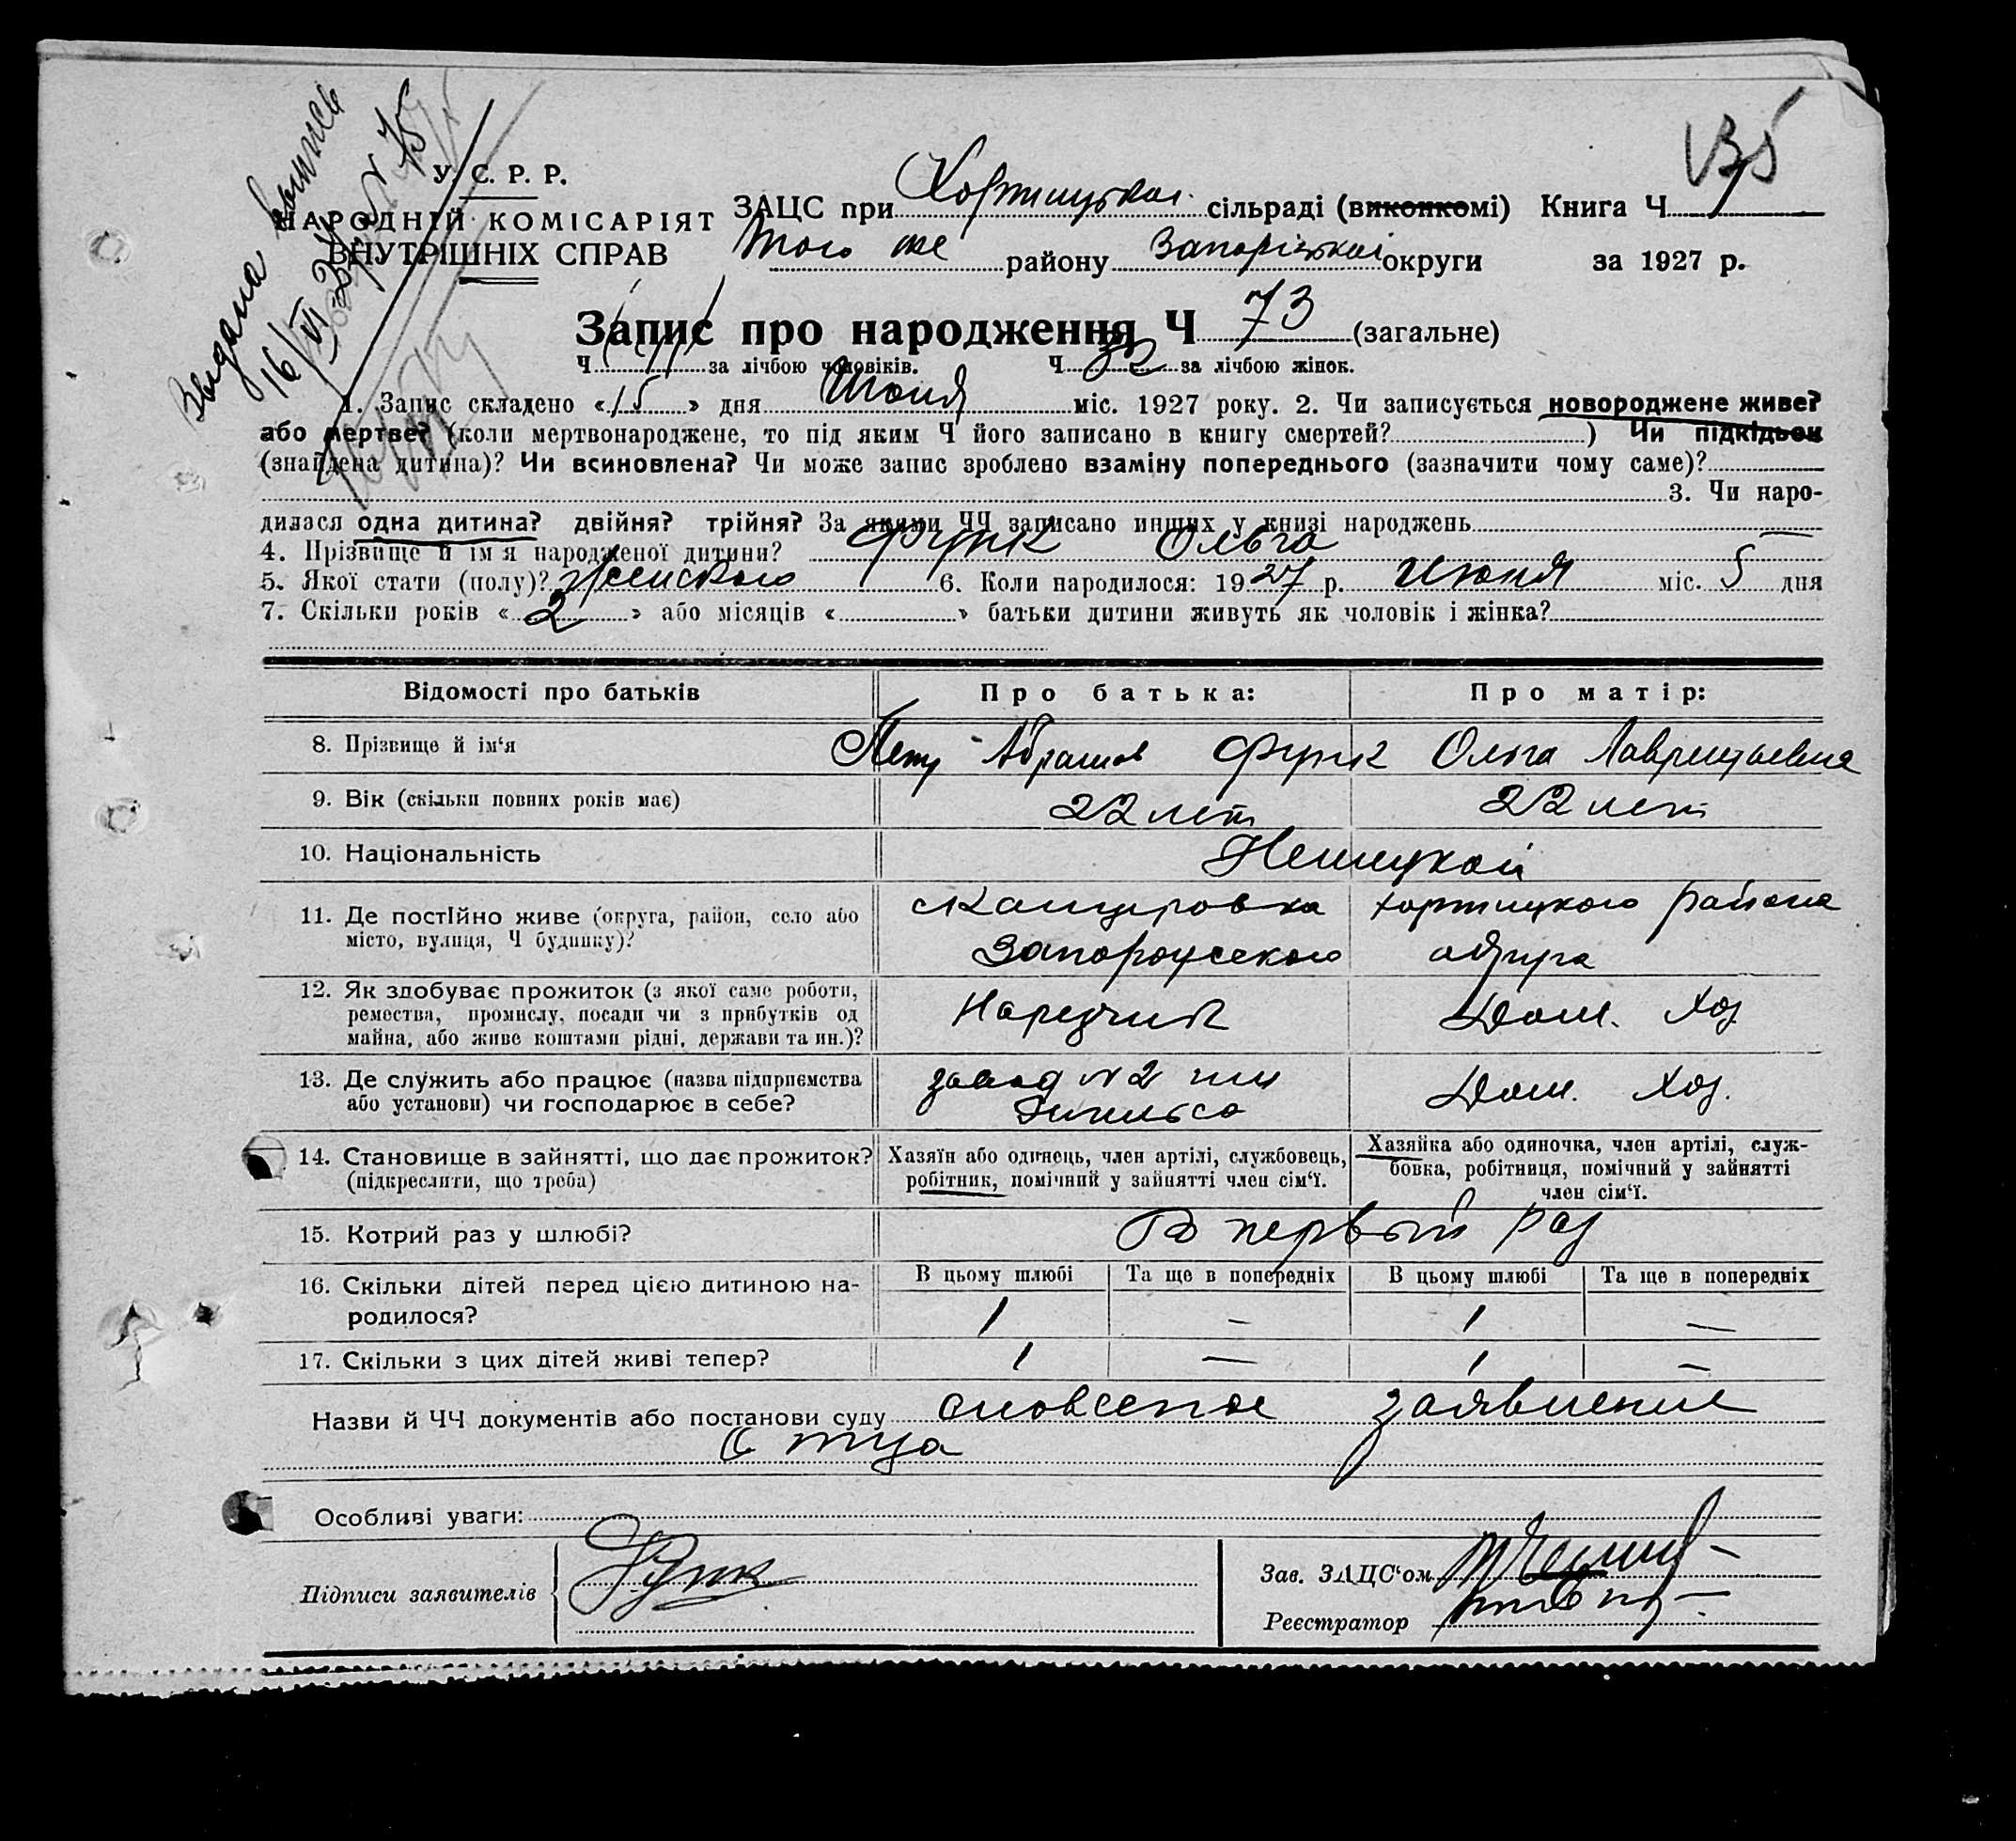 Видана выпись
16/VI 
N 75
135
У. С. Р. Р.
НАРОДНІЙ КОМІСАРІЯТ
ВНУТРІШНІХ СПРАВ
ЗАЦС при Хортицькой сільраді (виконкомі) Книга Ч 1
того же району Запорізькой округи за 1927 р.
Запис про народження Ч 73 (загальне)
Ч за лічбою чоловіків. Ч 32 за лічбою жінок.
1. Запис складено « 15 » дня Июня міс. 1927 року. 2. Чи записується новороджене живе?
або мертве? (коли мертвонароджене, то під яким Ч його записано в книгу смертей? ) Чи підкідьок
(знайдена дитина)? Чи всиновлена? Чи може запис зроблено взаміну попереднього (зазначити чому саме)?
3. Чи наро-
дилася одна дитина? двійня? трійня? За якими ЧЧ записано инших у книзі народжень —
4. Прізвище й ім'я народженої дитини? Функ Ольга
5. Якої стати (полу)? Женского 6. Коли народилося: 1927 р. Июня міс. 5 дня
7. Скільки років « 2 » або місяців « » батьки дитини живуть як чоловік і жінка?
Відомості про батьків Про батька: Про матір:
8. Прізвище й ім'я Петр Абрамов Функ Ольга Лаврентьевна
9. Вік (скільки повних років має) 22 лет 22 лет
10. Національність Немецкой
11. Де постійно живе (округа, район, село або Канцеровка Хортицкого района
місто, вулиця, Ч будинку)? Запорожского округа
12. Як здобуває прожиток (з якої саме роботи,
ремества, промислу, посади чи з прибутків од
майна, або живе коштами рідні, держави та ин.)? Дом. Хоз.
13. Де служить або працює (назва підприємства завод N 2 им
або установи) чи господарює в себе? Энгельса Дом. Хоз.
14. Становище в зайнятті, що дає прожиток? Хазяїн або одинець, член артілі, службовець, Хазяйка або одиночка, член артілі, служ-
(підкреслити, що треба) робітник, помічний у зайнятті член сім'ї. бовка, робітниця, помічний у зайнятті
член сім'ї.
15. Котрий раз у шлюбі? В первый раз
16. Скільки дітей перед цією дитиною на- В цьому шлюбі Та ще в попередніх В цьому шлюбі Та ще в попередніх
родилося? 1 — 1 —
17. Скільки з цих дітей живі тепер? 1 — 1 —
Назви й ЧЧ документів або постанови суду словесное заявление
Отца
Особливі уваги:
Підписи заявителів Функ
Зав. ЗАЦС'ом
Реєстратор